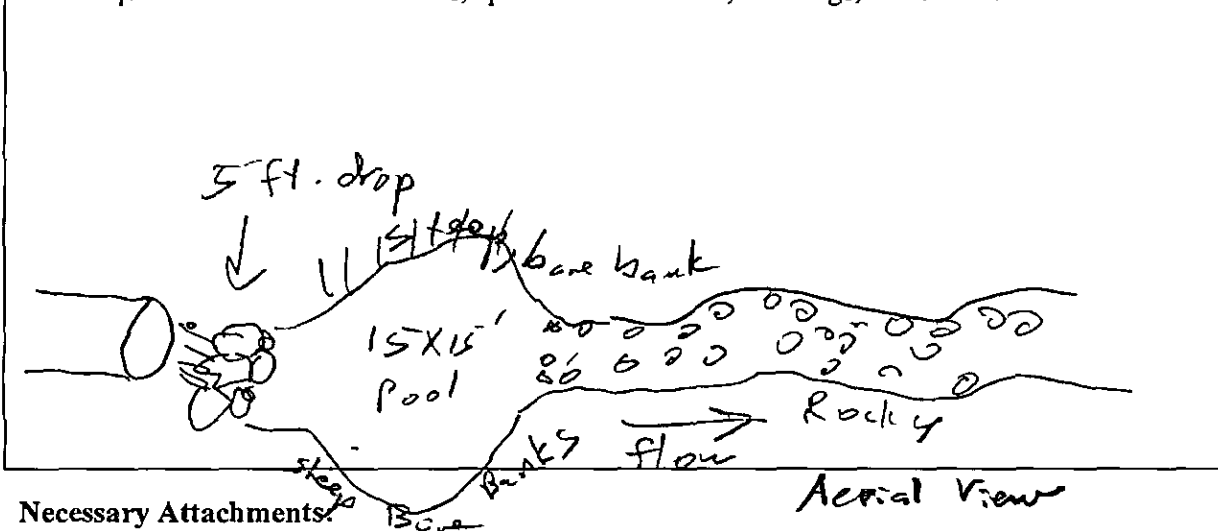 5 ft. drop
steep, bare bank
15X15'
Pool
Rocky
flow
steep Bare Banks
Aerial View
Necessary Attachments: